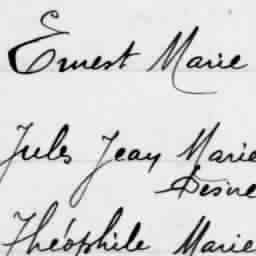 Ernest Marie
Jules Jean Marie
Desne
Théophile Marie